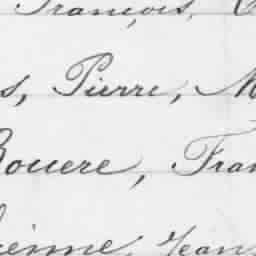 François,
s, Pierre, M
Bouere, Fran
ienne, Jean